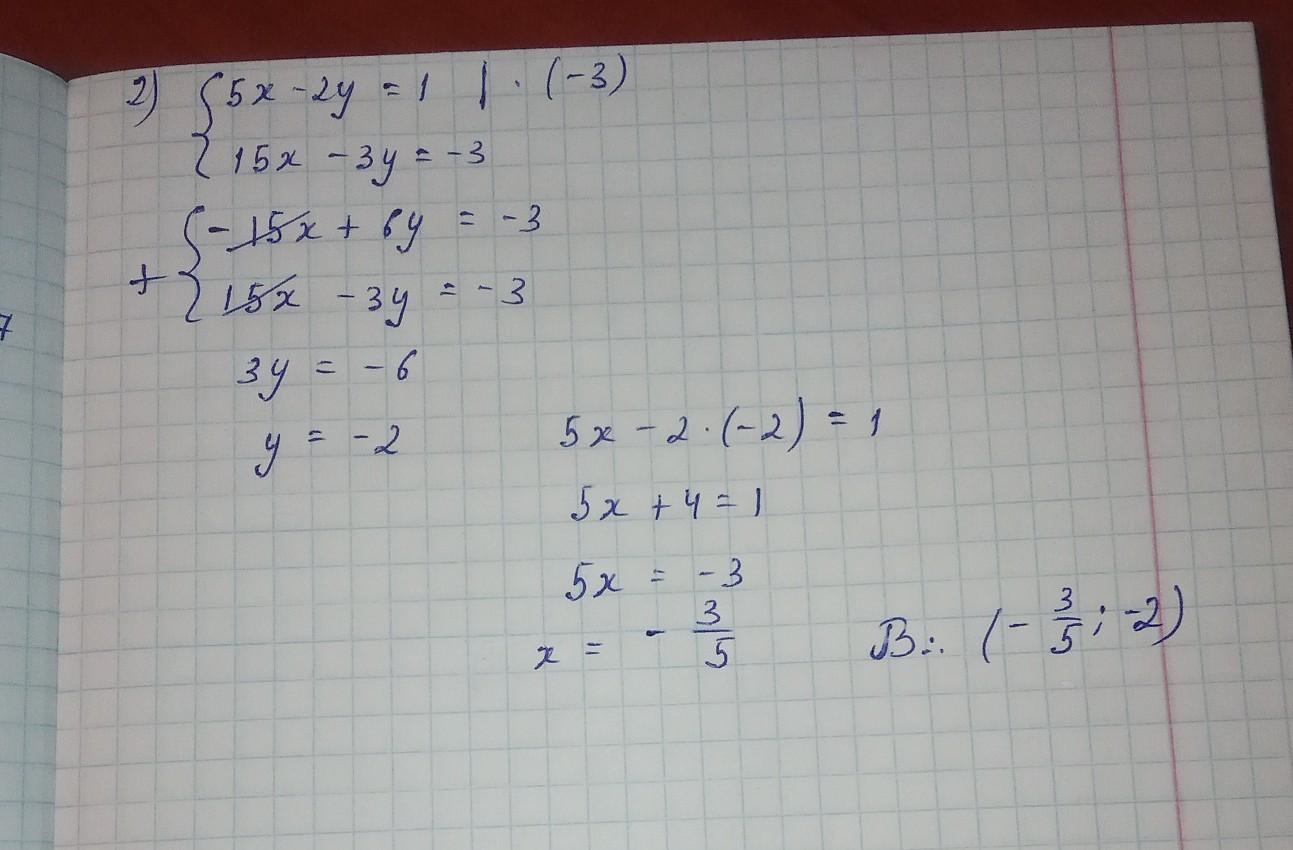 2) { 5x - 2y = 1 | · (-3)
15x - 3y = -3
+ { -15x + 6y = -3
15x - 3y = -3
3y = -6
y = -2
5x - 2 · (-2) = 1
5x + 4 = 1
5x = -3
x = - 3/5
В:. (- 3/5 ; -2)
7